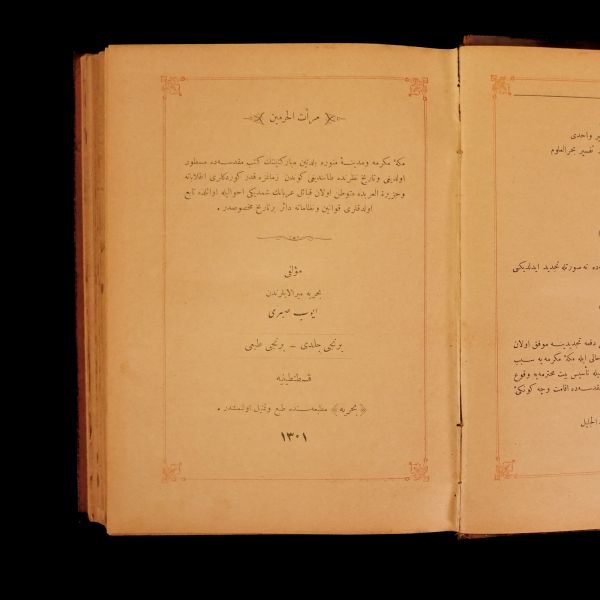 مرآت الحرمین
مكۀ مكرمه ومدینۀ منوره بلدتین مباركتینك كتب مقدسه‌ده مسطور
اولدیغی وتاریخ نظرنده طانندیغی كوندن زمانمزه قدر كوردكلری انقلاباته
وجزیرة العربده متوطن اولان قبائل عربانك شمدیكی احوالیله اوائلده تابع
اولدقلری قوانین ونظاماته دائر برتاریخ مخصوصدر .
مؤلفی
بحریه میرالایلرندن
ایوب صبری
برنجی جلدی — برنجی طبعی
قسطنطینیه
﴿ بحریه ﴾ مطبعه‌سنده طبع وتمثیل اولنمشدر .
١٣٠١
یر واحدی
تفسیر بحرالعلوم
ده نه صورتله تجدید ایدلدیكی
دفعه تجدیدینه موفق اولان
حالی ایله مكۀ مكرمه‌یه سبب
یله تأسیس بیت محترمه‌یه وقوع
مقدسه‌ده اقامت وچه كونكی
الجلیل